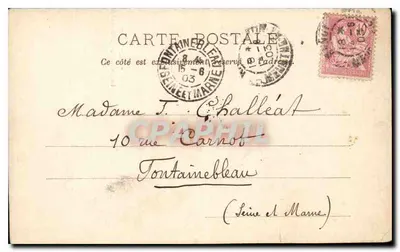 CARTE POSTALE
Ce côté est exclusivement réservé à l'adresse
FONTAINEBLEAU
SEINE ET MARNE
15 - 6
03
Madame J. Challéat
10 rue Carnot
Fontainebleau
(Seine et Marne)